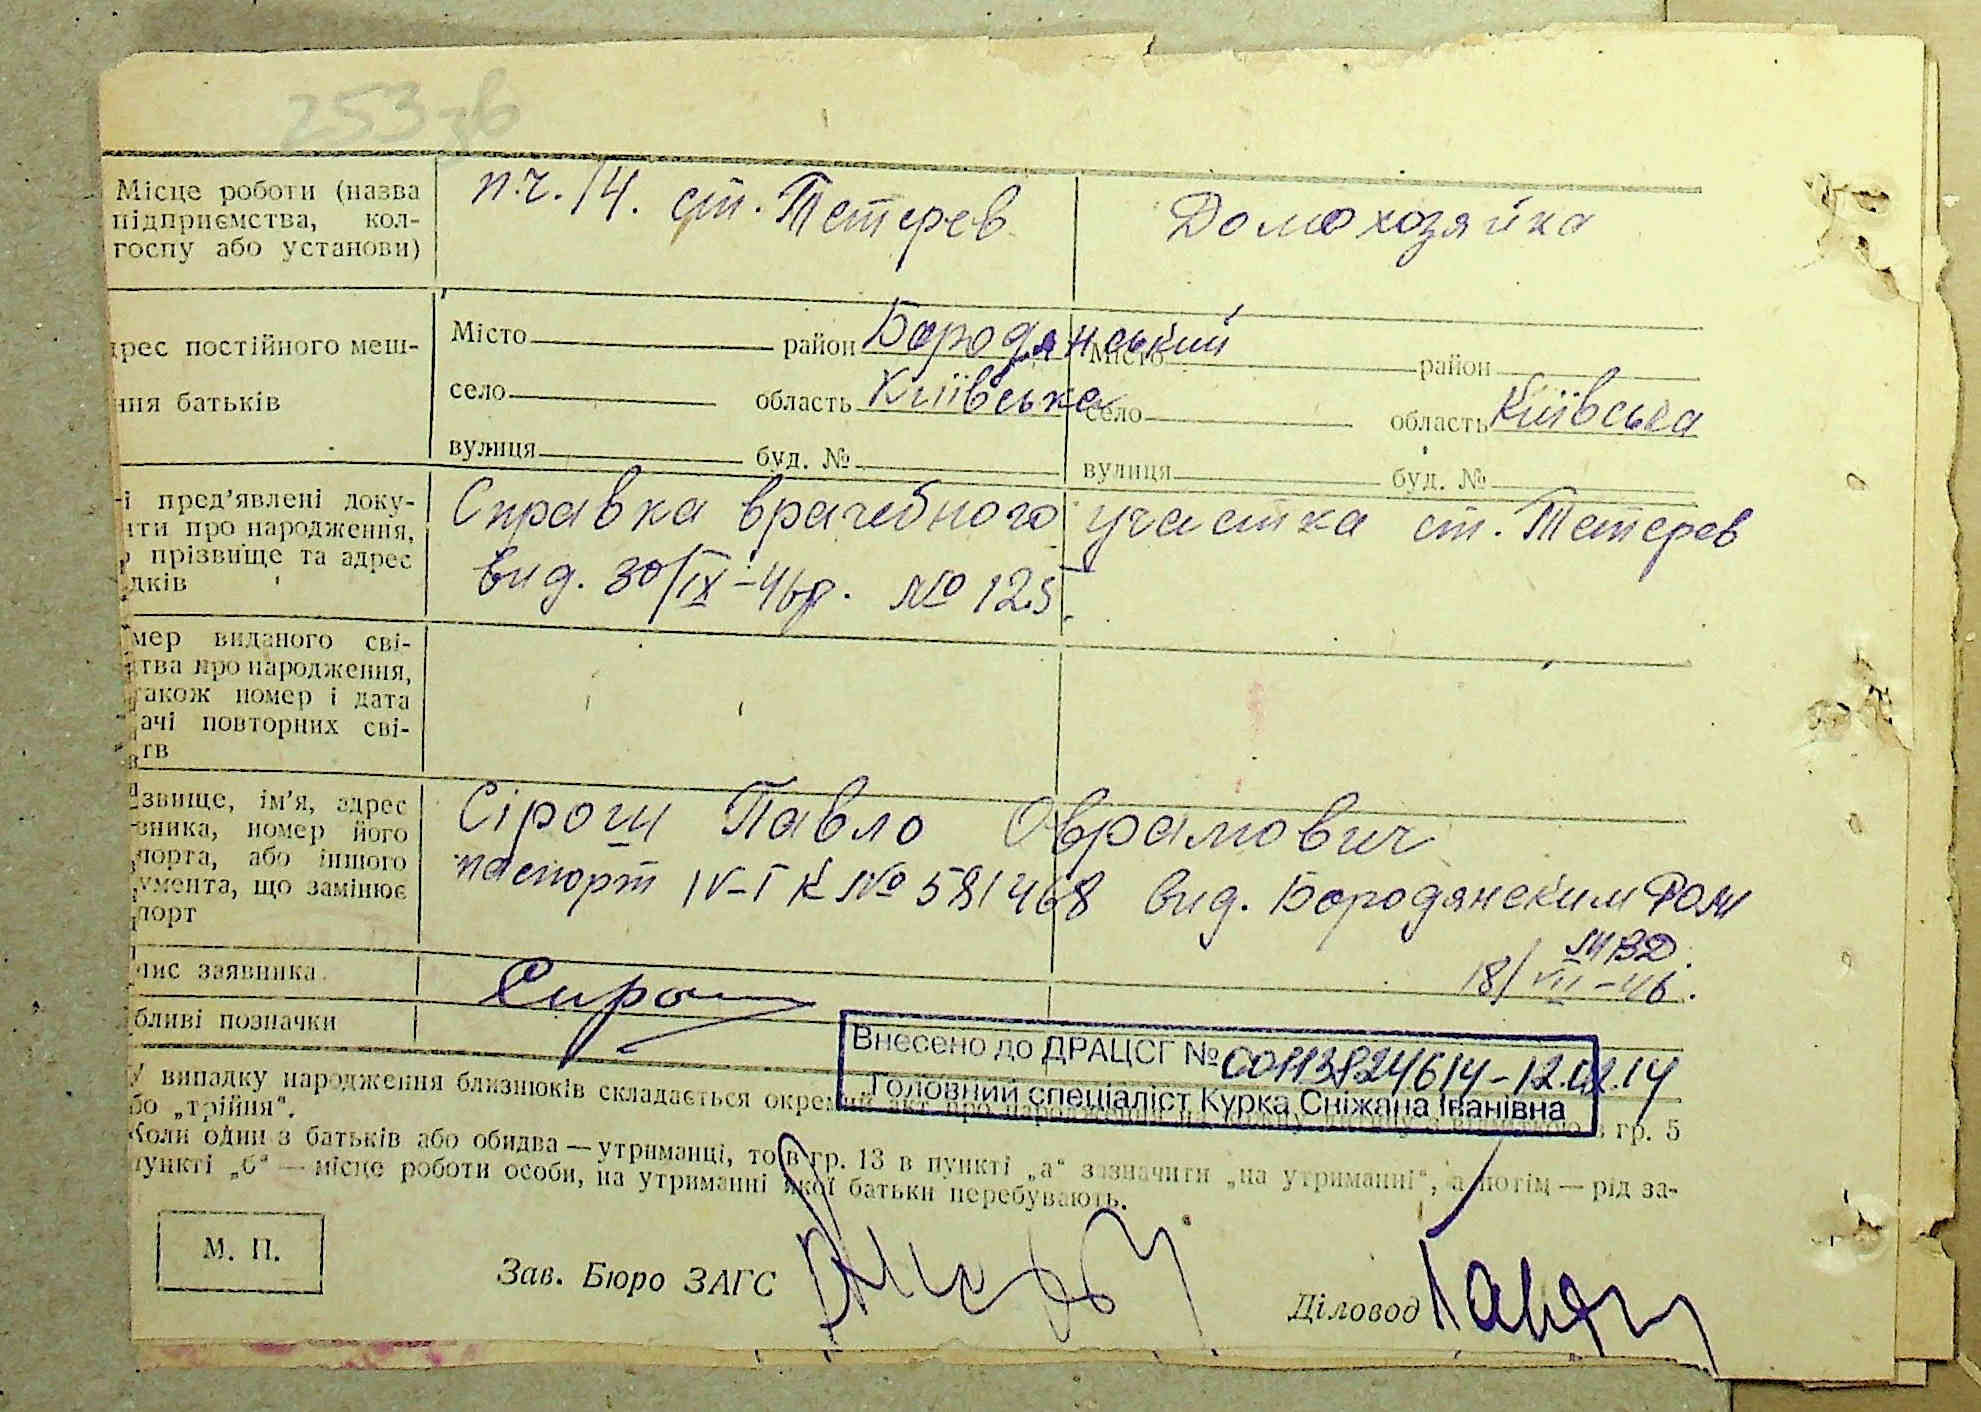 253 зв
Місце роботи (назва
підприємства, кол-
госпу або установи)
п.ч. 14. ст. Тетерев
Домохозяйка
дрес постійного меш-
ння батьків
Місто район Бородянський
село область Київська
вулиця буд. №
Місто район
село область Київська
вулиця буд. №
і пред'явлені доку-
нти про народження,
прізвище та адрес
дків
Справка врачебного участка ст. Тетерев
вид. 30/IX-46р. № 125.
мер виданого сві-
тва про народження,
також номер і дата
ачі повторних сві-
тв
звище, ім'я, адрес
вника, номер його
порта, або іншого
умента, що замінює
порт
Сірош Павло Оврамович
паспорт IV-І К № 581468 вид. Бородянским РОМ
МВД.
18/VII-46.
пис заявника
Сирош
бливі позначки
Внесено до ДРАЦСГ № 00113824614-12.02.14
Головний спеціаліст Курка Сніжана Іванівна
У випадку народження близнюків складається окремий акт про народження на кожну дитину з відміткою в гр. 5
бо „трійня".
Коли один з батьків або обидва — утриманці, то в гр. 13 в пункті „а" зазначити „на утриманні", а потім — рід за-
пункті „б" — місце роботи особи, на утриманні якої батьки перебувають.
М. П.
Зав. Бюро ЗАГС
Діловод